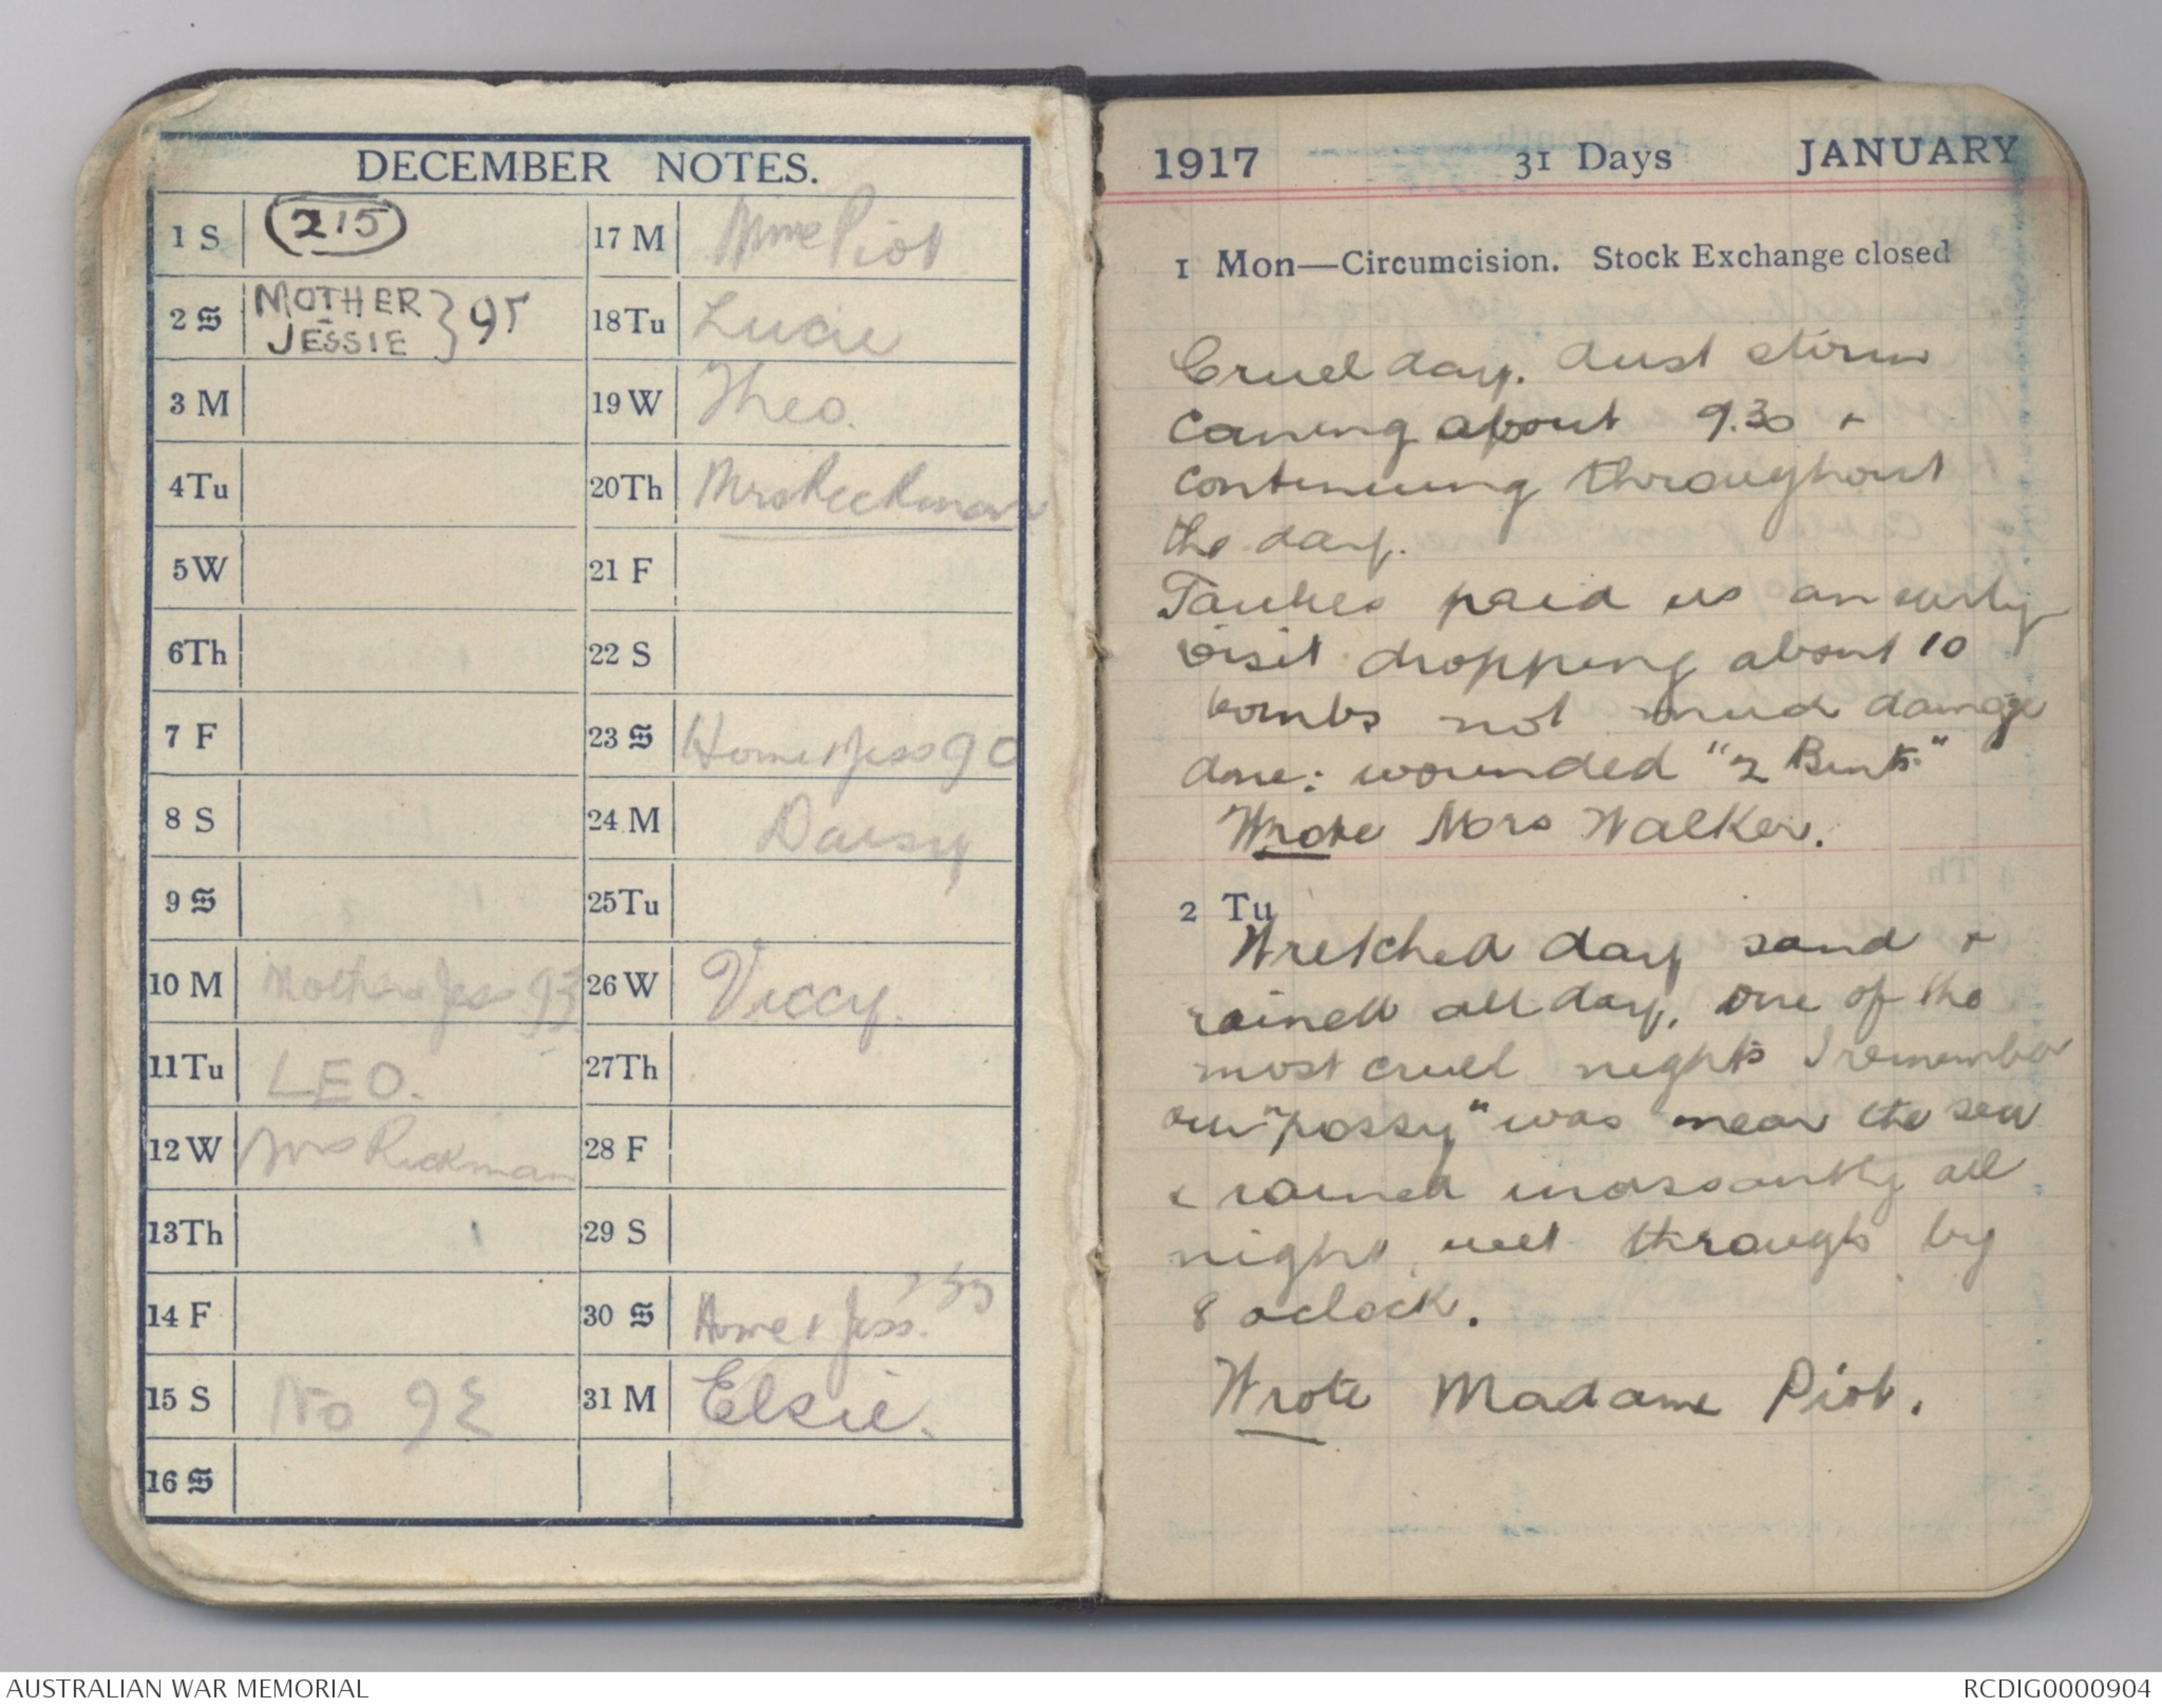 DECEMBER NOTES.
1 S (215)
2 S MOTHER & JESSIE } 95
3 M
4 Tu
5 W
6 Th
7 F
8 S
9 S
10 M Mother & Jes 93
11 Tu LEO.
12 W Mrs Rickman
13 Th
14 F
15 S No 92
16 S
17 M Mme Piot
18 Tu Lucie
19 W Theo.
20 Th Mrs Rickman
21 F
22 S
23 S Home & Jess 90
24 M Daisy
25 Tu
26 W Viccy.
27 Th
28 F
29 S
30 S Home & Jess.
31 M Elsie.
1917 31 Days JANUARY
1 Mon—Circumcision. Stock Exchange closed
Cruel day. dust storm
coming about 9.30 +
continuing throughout
the day.
Taubes paid us an early
visit dropping about 10
bombs not much damage
done: wounded "2 Bints"
Wrote Mrs Walker.
2 Tu
Wretched day sand +
rained all day, one of the
most cruel nights I remember
our "possy" was near the sea
& rained incessantly all
night, wet through by
8 oclock.
Wrote Madame Piot.
AUSTRALIAN WAR MEMORIAL
RCDIG0000904